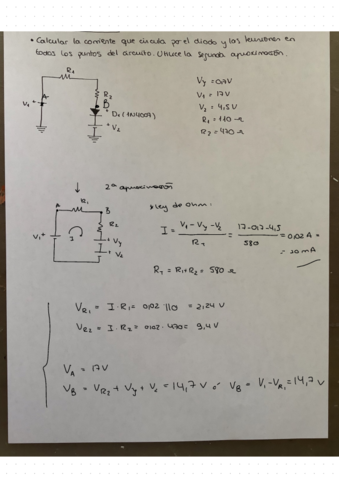 • Calcular la corriente que circula por el diodo y las tensiones en
todos los puntos del circuito. Utilice la segunda aproximación.
R1
A
V1
R2
B
D1 (1N4007)
V2
Vγ = 0,7V
V1 = 17V
V2 = 4,5V
R1 = 110 Ω
R2 = 470 Ω
↓ 2ª aproximación
A
R1
B
V1
I
R2
Vγ
V2
* Ley de Ohm:
I = V1 - Vγ - V2 / RT = 17-0,7-4,5 / 580 = 0,02 A =
= 20 mA
RT = R1 + R2 = 580 Ω
VR1 = I · R1 = 0,02 · 110 = 2,24 V
VR2 = I · R2 = 0,02 · 470 = 9,4 V
VA = 17V
VB = VR2 + Vγ + V2 = 14,7 V or VB = V1 - VR1 = 14,7 V